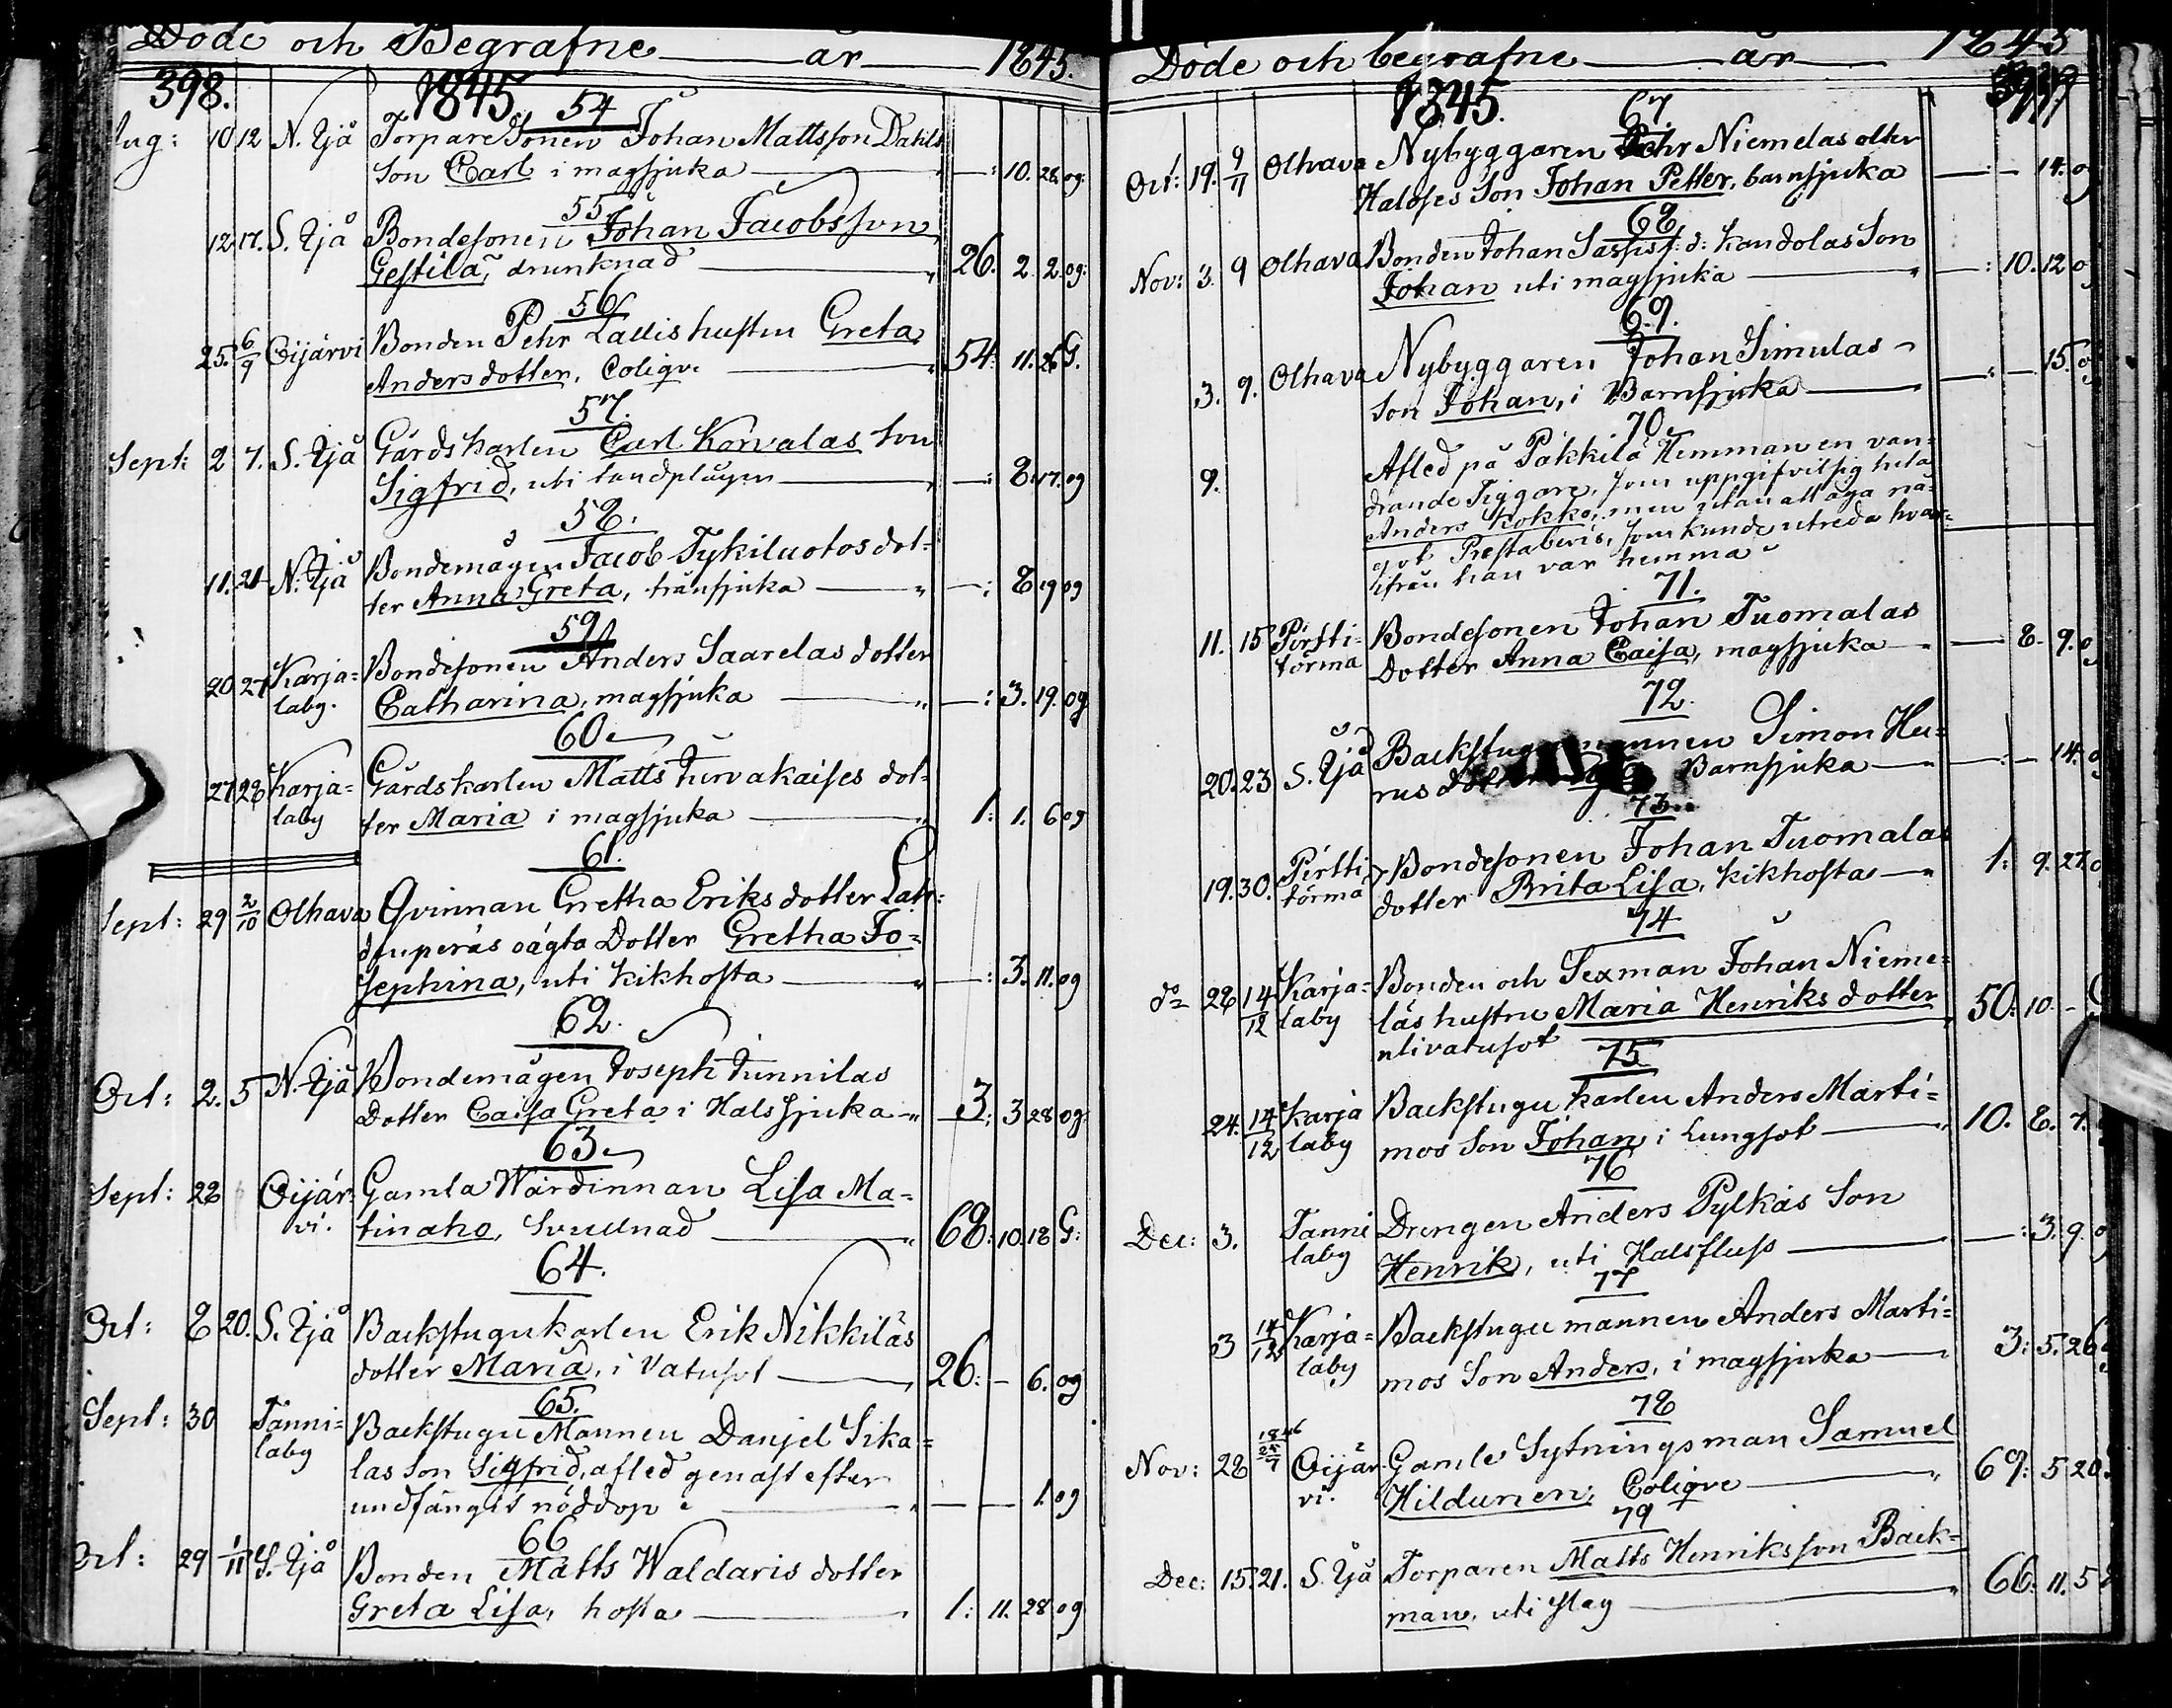 Döde och Begrafne år 1845.
398. 1845.
54
Aug: 10 12 N. Ijå Torparesonen Johan Mattsson Dahls
Son Carl i magsjuka —: 10. 28. og.
55.
12 17. S. Ijå Bondesonen Johan Jacobsson
Gestilä, drunknad 26. 2. 2. og:
56
25. 6/9 Oijärvi Bonden Pehr Lallis hustru Greta
Andersdotter, Coliqve 54: 11. 26 G.
57.
Sept: 2 7. S. Ijå Gårdskarlen Carl Korvalas Son
Sigfrid, uti landplågen —: 8. 17. og
58.
11. 21 N. Ijå Bondemågen Jacob Tykiluotos dot-
ter Anna Greta, trånsjuka —: 8 19 og
59
20 27 Karja= Bondesonen Anders Saarelas dotter
laby. Catharina, magsjuka —: 3. 19. og
60
27 28 Karja= Gårdskarlen Matts Turvakaises dot-
laby ter Maria i magsjuka 1: 1. 6 og
61.
Sept: 29 2/10 Olhava Qvinnan Gretha Eriksdotter Lat-
dsuperäs oägta Dotter Gretha Jo=
sephina, uti kikhosta —: 3. 11. og
62.
Oct: 2. 5 N. Ijå Bondemågen Joseph Tunnilas
Dotter Caisa Greta i Halssjuka 3: 3 28 og
63
Sept: 28 Oijär- Gamla Wärdinnan Lisa Ma=
vi. tinaho, Svullnad 68: 10. 18 G:
64.
Oct: 8 20. S. Ijå Backstugukarlen Erik Nikkiläs
dotter Maria, i Vatusot 26: — 6. og
65.
Sept: 30 Tanni= Backstugu Mannen Danjel Sika=
laby las Son Sigfrid, afled genast efter
undfångit nöddop — — 1. og
66
Oct: 29 1/11 S. Ijå Bonden Matts Waldaris dotter
Greta Lisa, hosta 1: 11. 28 og
Döde och begrafne år 1845
1845.
67.
Oct: 19. 9/11 Olhava Nybyggaren Pehr Niemelas eller
Haloses Son Johan Petter, barnsjuka —: — 14. og
68
Nov: 3. 9 Olhava Bonden Johan Sassis f: d: Kandolas Son
Johan uti magsjuka —: 10. 12 o
69.
3. 9. Olhava Nybyggaren Johan Simulas
Son Johan, i Barnsjuka —: — 15. og
70.
9. Afled på Päkkilä Hemman en van-
drande Tiggare, som uppgifvit sig heta
Anders Kokko, men utan att äga nå-
got Prestabevis, som kunde utreda hvar-
ifrån han var hemma
71.
11. 15 Pirtti- Bondesonen Johan Tuomalas
törmä Dotter Anna Caisa, magsjuka — 8. 9. o
72.
20. 23 S. Ijå Backstugumannen Simon Hu-
rus Barnsjuka —: — 14. o
73
19. 30. Pirtti Bondesonen Johan Tuomalas
törmä dotter Brita Lisa, kikhosta 1: 9. 27. o
74
do 28 14/12 Karja= Bonden och Sexman Johan Nieme-
laby läs hustru Maria Henriksdotter 50: 10. -
uti vatusot
75
24. 14/12 Karja Backstugukarlen Anders Marti=
laby mos Son Johan i Lungsot 10. 8. 7.
76
Dec: 3. Tanni Drengen Anders Pylkäs Son
laby Henrik, uti Halsfluss —: 3. 9. og
77
3 14/12 Karja= Backstugu mannen Anders Marti=
laby mos Son Anders, i magsjuka 3: 5. 26
78
Nov: 28 1846 25/7 Oijär- Gamle Sytningsman Samuel
vi. Hildunen, Coliqve 69: 5 20.
79
Dec: 15. 21. S. Ijå Torparen Matts Henriksson Back-
man, uti slag 66: 11. 5